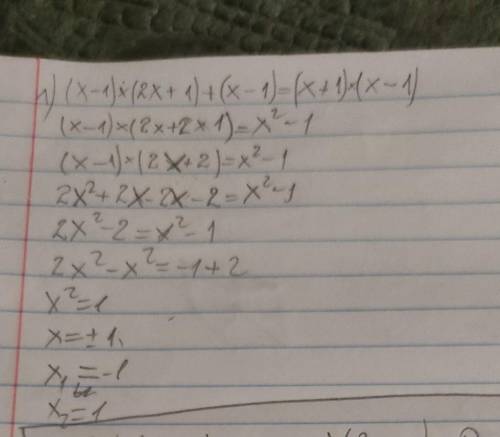 л) (x-1)×(2x+1)+(x-1)=(x+1)×(x-1)
(x-1)×(2x+2×1)=x²-1
(x-1)×(2x+2)=x²-1
2x²+2x-2x-2=x²-1
2x²-2=x²-1
2x²-x²=-1+2
x²=1
x=±1,
x₁=-1
и
x₂=1